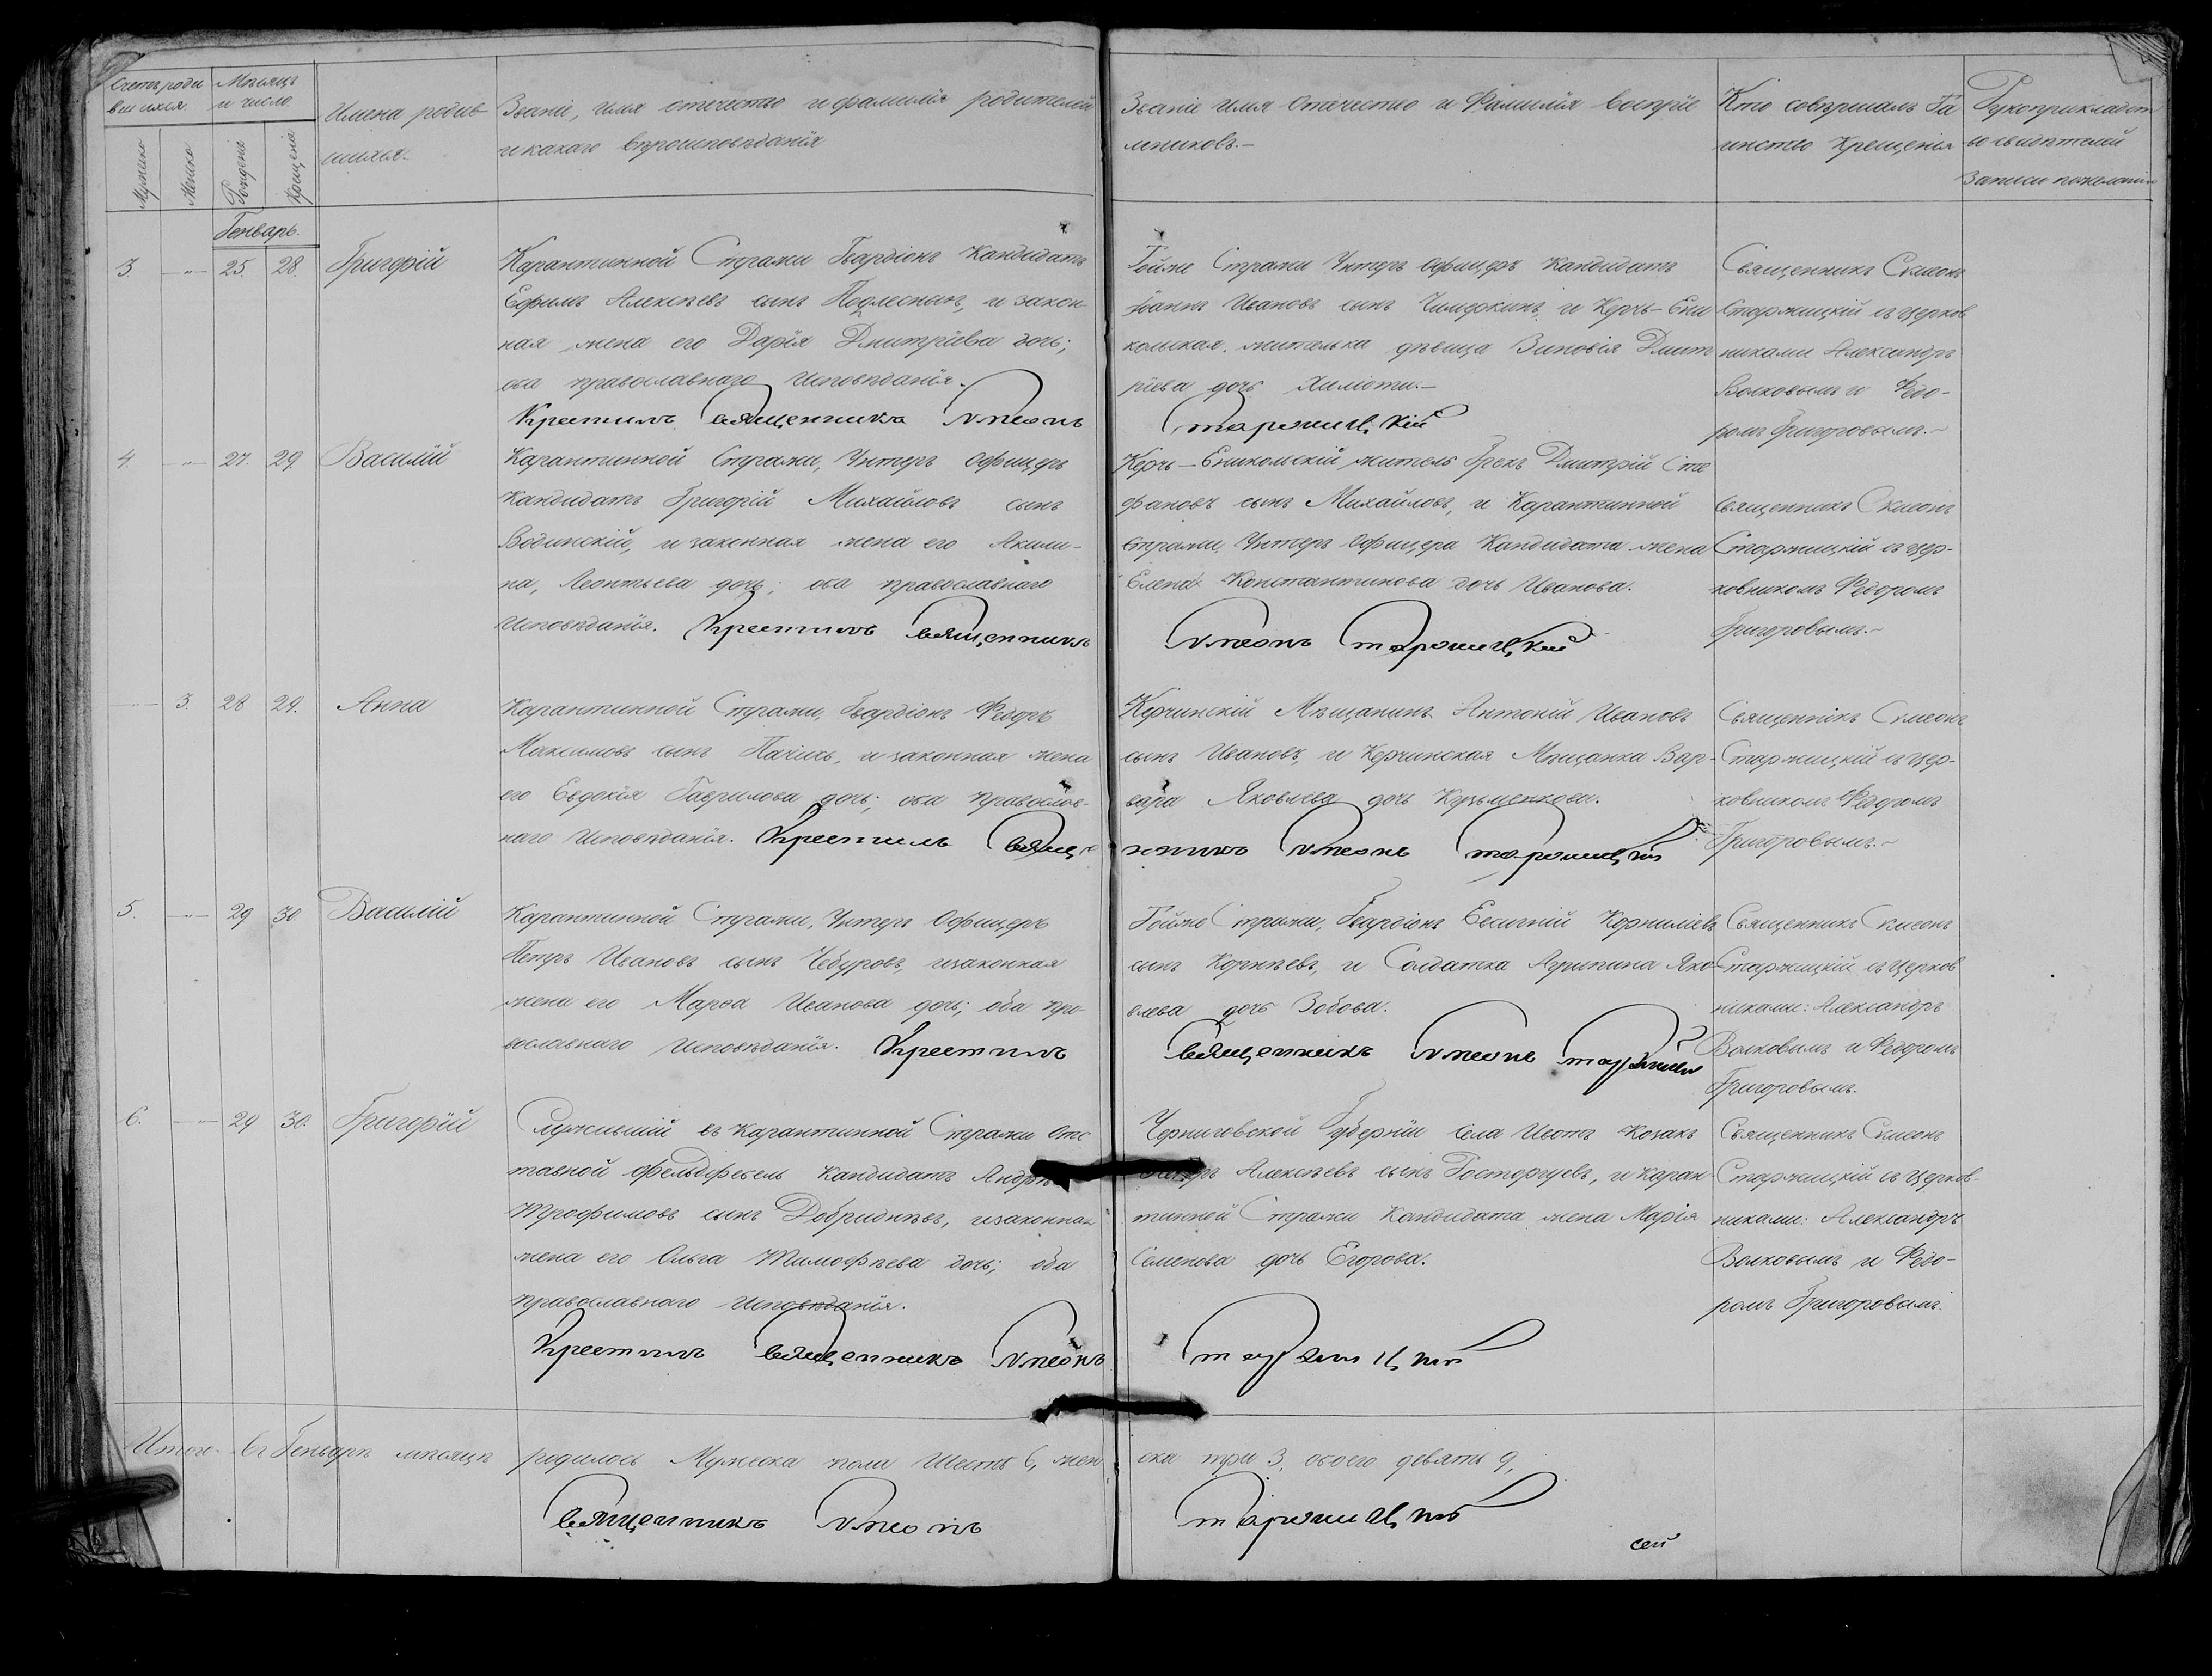 Счетъ роди
вшихся.
Мѣсяцъ
и число
Имена родив
шихся.
Званіе, имя отечество и фамилія родителей
и какаго вѣроисповѣданія
Званіе имя отечество и Фамилія воспріе
мниковъ.-
Кто совершалъ Та
инство Крещенія
Рукоприкладст
во свидѣтелей
записи по желанію
Мужеска
Женска
Рожденія
Крещенія
Генварь.
3 -„- 25. 28. Григорій
Карантинной Стражи Гвардіонъ Кандидатъ
Ефимъ Алексѣевъ сынъ Подлесныхъ, и закон-
ная жена его Дарія Дмитріева дочь;
оба православнаго исповѣданія.
Крестилъ священникъ Симеонъ
Тойже Стражи Унтеръ Офицеръ Кандидатъ
Іоаннъ Ивановъ сынъ и Керчь-Ени
кольская жителька дѣвица Зиновія Дмит
ріева дочь
Старжицкій
Священникъ Симеонъ
Старжицкій съ церков
никами Александръ
Волковымъ и Ѳедо-
ромъ Григоровымъ.~
4. -„- 27. 29. Василій
Карантинной Стражи, Унтеръ Офицеръ
Кандидатъ Григорій Михайловъ сынъ
Водинскій, и законная жена его Акили-
на, Леонтьева дочь; оба православнаго
исповѣданія. Крестилъ священникъ
Керчь-Еникольскій житель Грекъ Дмитрій Сте
фановъ сынъ Михайловъ, и Карантинной
Стражи, Унтеръ Офицера Кандидата жена
Елена Константинова дочь Иванова.
Симеонъ Старжицкій
Священникъ Симеонъ
Старжицкій съ цер-
ковникомъ Ѳедоромъ
Григоровымъ.~
3. 28 29. Анна
Карантинной Стражи, Гвардіонъ Ѳедоръ
Максимовъ сынъ и законная жена
его Евдокія Гаврилова дочь; оба православ-
наго исповѣданія. Крестилъ Священ
Керчинскій Мѣщанинъ Антоній Ивановъ
сынъ Ивановъ, и Керчинская Мѣщанка Вар-
вара Яковлева дочь Кузьменкова.
никъ Симеонъ Старжицкій
Священникъ Симеонъ
Старжицкій съ цер-
ковникомъ Ѳедоромъ
Григоровымъ.~
5. -„- 29 30 Василій
Карантинной Стражи, Унтеръ Офицеръ
Петръ Ивановъ сынъ Чебуровъ, и законная
жена его Марѳа Иванова дочь; оба пра-
вославнаго исповѣданія. Крестилъ
Тойже Стражи, Гвардіонъ Евсигній Корниліевъ
сынъ Корнѣевъ, и Солдатка Агрипина Яко-
влева дочь Зобова.
Священникъ Симеонъ Старжицкій
Священникъ Симеонъ
Старжицкій съ церков
никами: Александръ
Волковымъ и Ѳедоромъ
Григоровымъ.
6. -„- 29 30. Григорій
Служившій въ Карантинной Стражи отс
тавной фельдфебель Кандидатъ Андрѣй
Трофимовъ сынъ Добридневъ, и законная
жена его Ольга Тимофѣева дочь; оба
православнаго исповѣданія.
Крестилъ священникъ Симеонъ
Черниговской Губерніи села Ивотъ Козакъ
Алексѣевъ сынъ Расторгуевъ, и Каран
тинной Стражи Кандидата жена Марія
Семенова дочь Егорова.
Старжицкій
Священникъ Симеонъ
Старжицкій съ церков-
никами: Александръ
Волковымъ и Ѳедо-
ромъ Григоровымъ.
Итого въ Генварѣ мѣсяцѣ родилось Мужеска пола Шесть 6, жен ска три 3, обоего девять 9,
Священникъ Симеонъ Старжицкій
сей